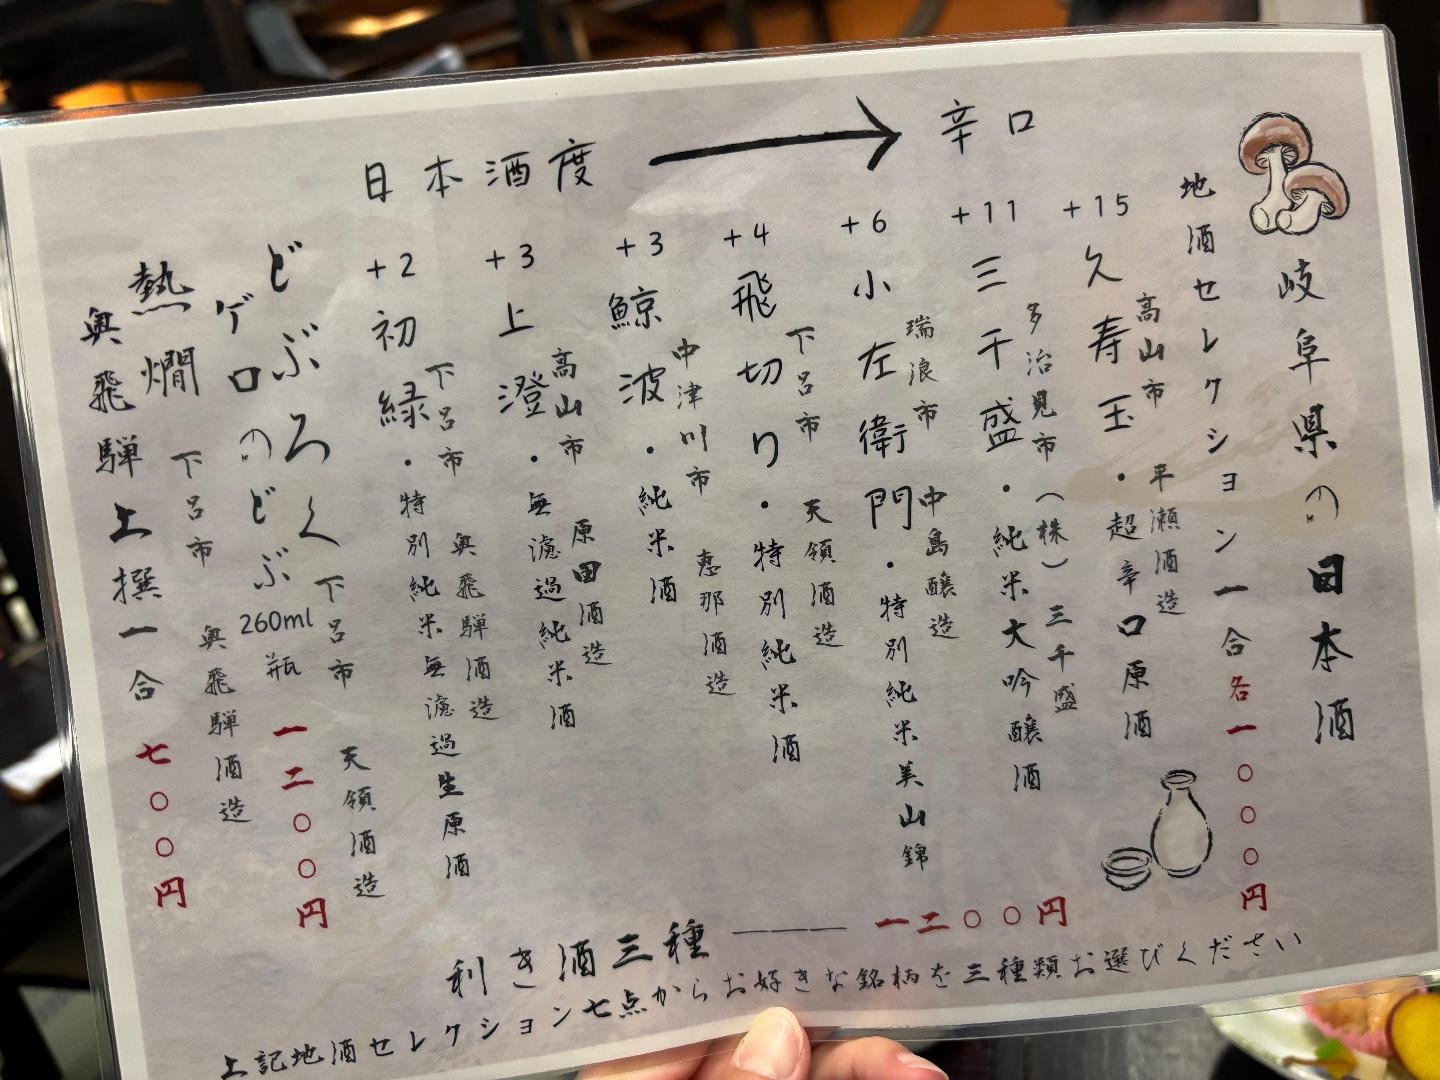 岐阜県の日本酒
地酒セレクション 一合各一〇〇〇円
日本酒度 → 辛口
+15
久寿玉・超辛口原酒
高山市 平瀬酒造
+11
三千盛・純米大吟醸酒
多治見市 (株)三千盛
+6
小左衛門・特別純米美山錦
瑞浪市 中島醸造
+4
飛切り・特別純米酒
下呂市 天領酒造
+3
鯨波・純米酒
中津川市 恵那酒造
+3
上澄・無濾過純米酒
高山市 原田酒造
+2
初緑・特別純米無濾過生原酒
下呂市 奥飛騨酒造
どぶろく
ゲロのどぶ 260ml瓶 一二〇〇円
下呂市 天領酒造
熱燗
奥飛騨上撰一合 七〇〇円
下呂市 奥飛騨酒造
利き酒三種 ――― 一二〇〇円
上記地酒セレクション七点からお好きな銘柄を三種類お選びください